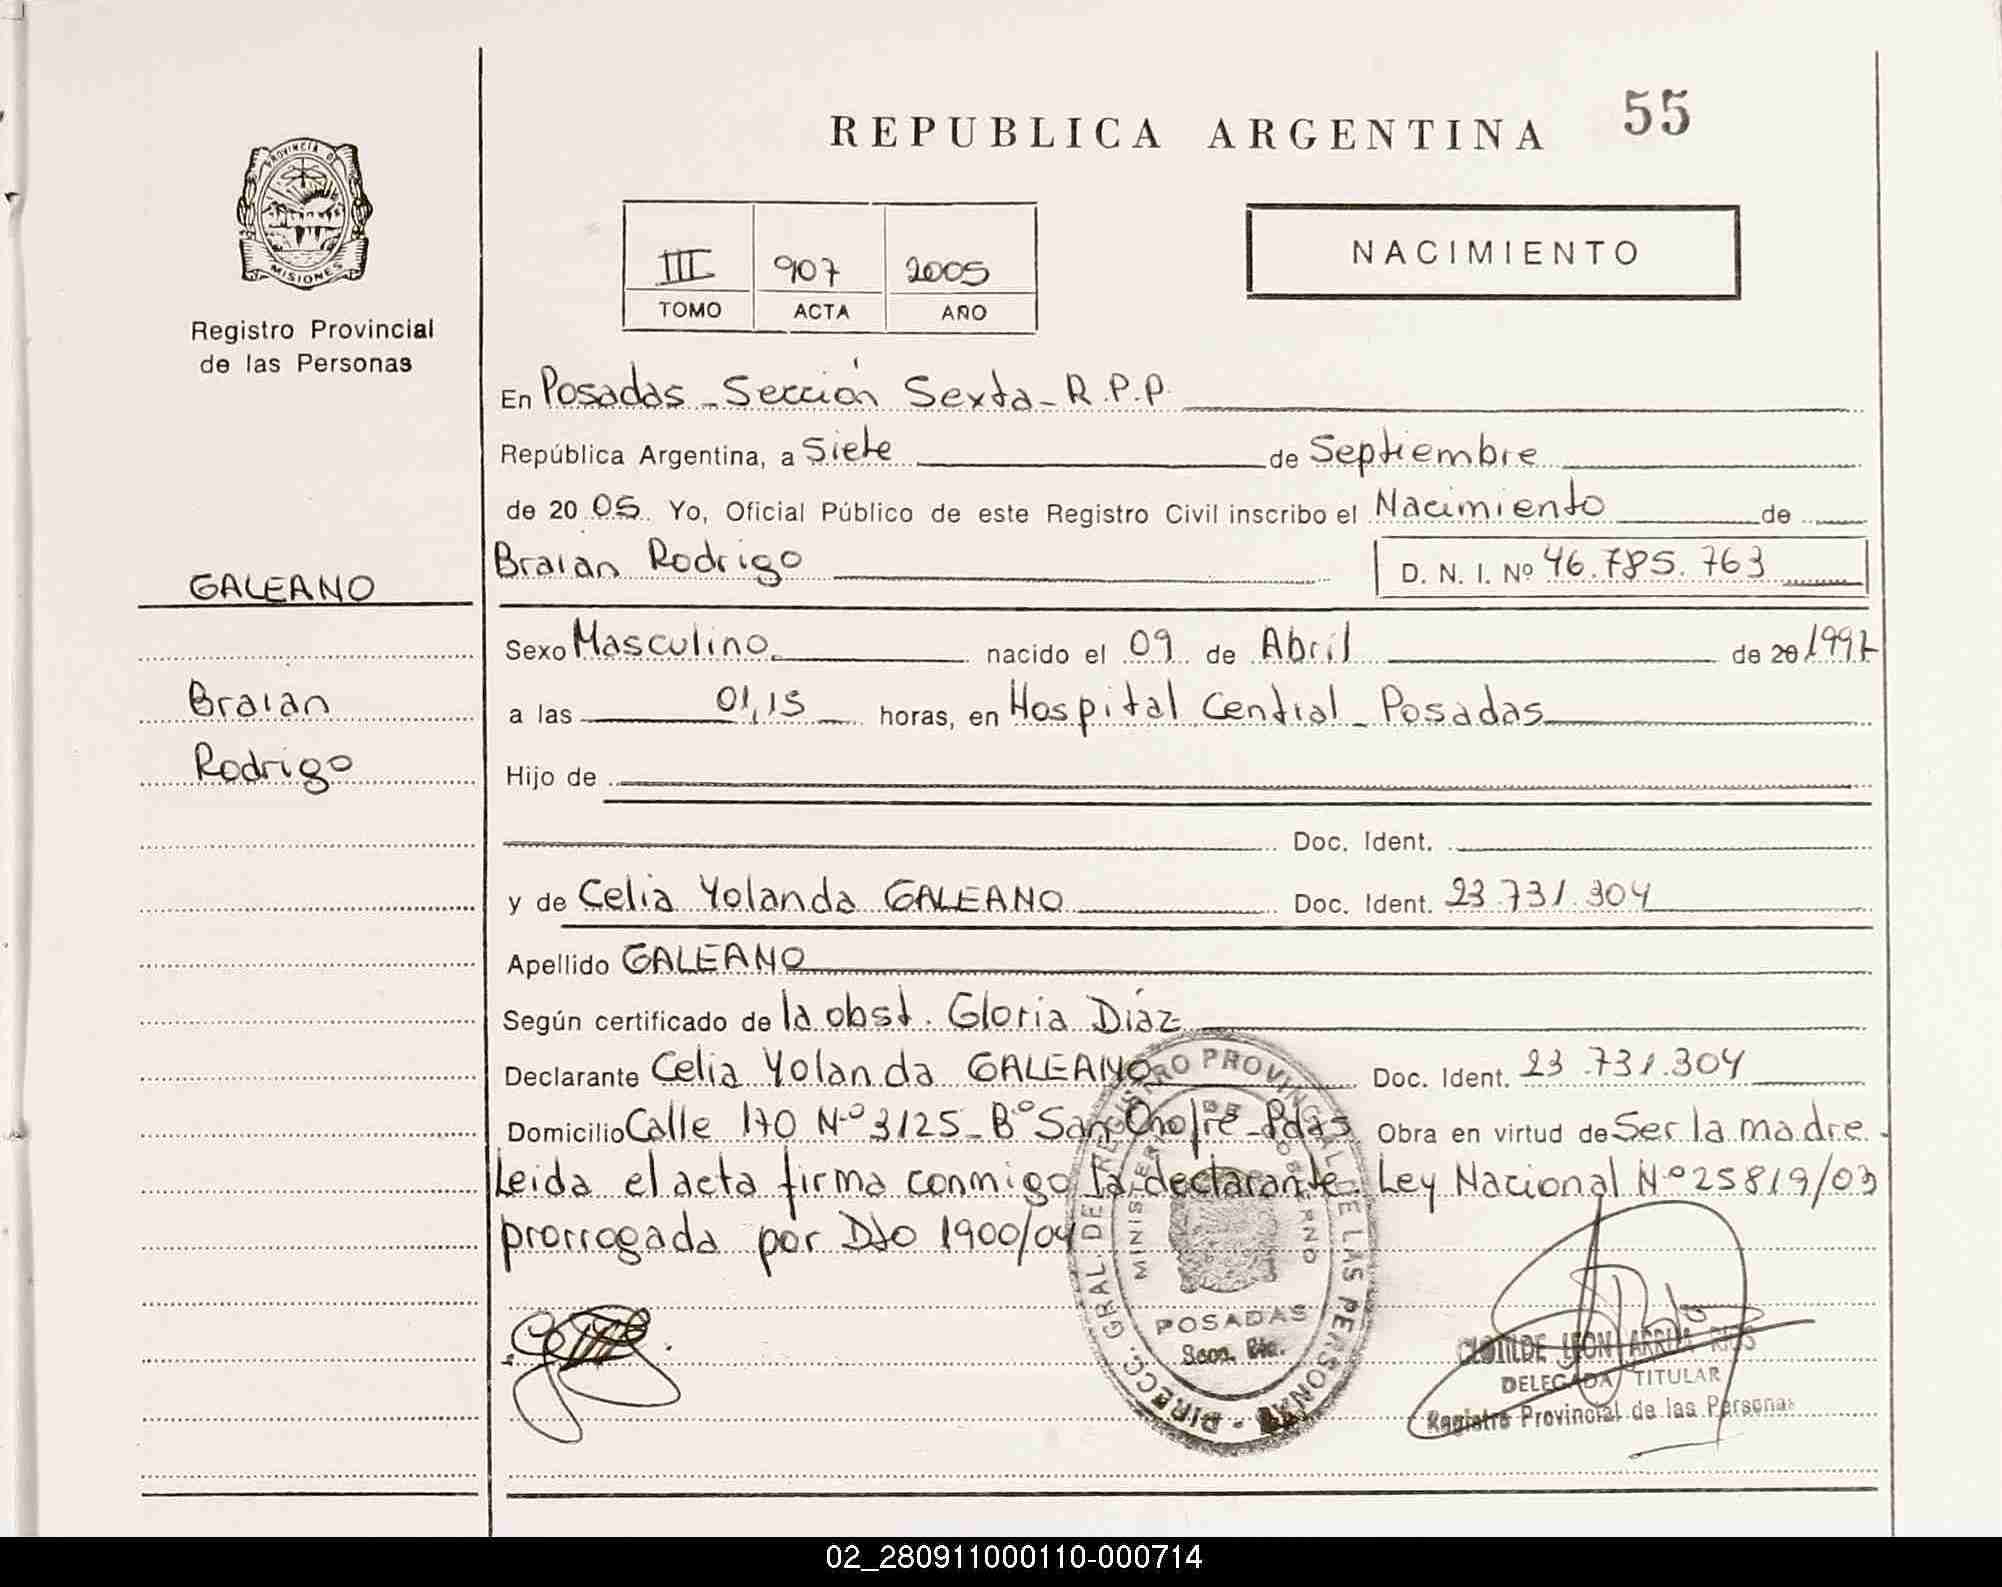 REPUBLICA ARGENTINA 55
PROVINCIA DE
MISIONES
Registro Provincial
de las Personas
III 907 2005
TOMO ACTA AÑO
NACIMIENTO
En Posadas - Sección Sexta - R.P.P.
República Argentina, a Siete de Septiembre
de 20 05 Yo, Oficial Público de este Registro Civil inscribo el Nacimiento de
Braian Rodrigo D. N. I. Nº 46.785.763
GALEANO
Braian
Rodrigo
Sexo Masculino nacido el 09 de Abril de 20 1997
a las 01,15 horas, en Hospital Central - Posadas
Hijo de
Doc. Ident.
y de Celia Yolanda GALEANO Doc. Ident. 23.731.304
Apellido GALEANO
Según certificado de la obst. Gloria Díaz
Declarante Celia Yolanda GALEANO Doc. Ident. 23.731.304
Domicilio Calle 170 Nº 3125 - Bº San Onofre - Pdas Obra en virtud de Ser la madre.
Leida el acta firma conmigo la declarante. Ley Nacional Nº 25819/03
prorrogada por Dto 1900/04
DIRECC. GRAL. DE REGISTRO PROVINCIAL DE LAS PERSONAS
MINISTERIO DE GOBIERNO
POSADAS
Secc. 6ta.
CLOTILDE LEON ARRUA RIOS
DELEGADA TITULAR
Registro Provincial de las Personas
02_280911000110-000714